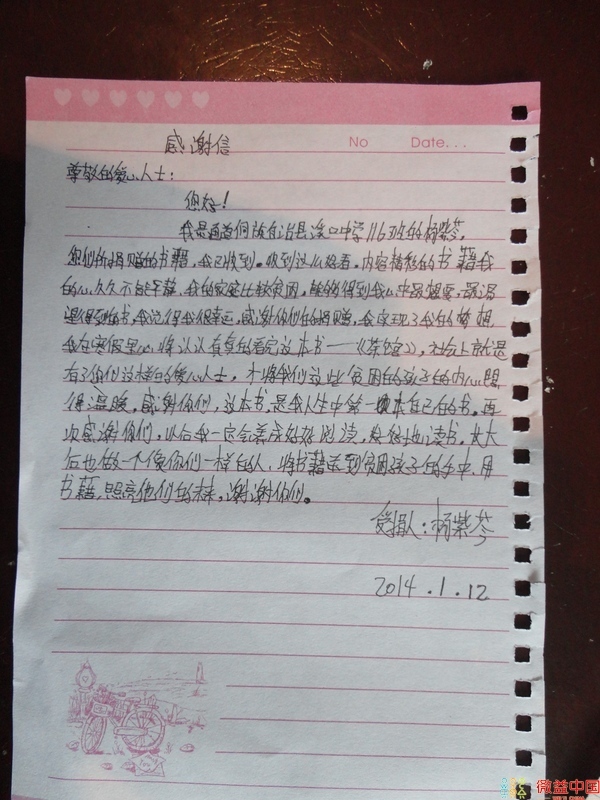 感谢信
No
Date...
尊敬的爱心人士:
您好!
我是通道侗族自治县溪口中学116班的杨紫芩。
您们所捐赠的书籍,我已收到。收到这么好看,内容精彩的书籍我
的心久久不能平静、我的家庭比较贫困,能够得到我心中最想要,最渴
望得到的书,我觉得我很幸运,感谢你们的捐赠,我实现了我的梦想
我在寒假里,将认认真真的看完这本书——《茶馆》,社会上就是
有了你们这样的爱心人士,才将我们这些贫困的孩子的内心照
得温暖。感谢你们,这本书,是我人生中第一本自己的书。再
次感谢你们,以后我一定会养成好好阅读,好好地读书,长大
后也做一个像你们一样的人,将书籍送到贫困孩子的手中。用
书籍,照亮他们的未来,谢谢你们。
受捐人:杨紫芩
2014.1.12
微益中国